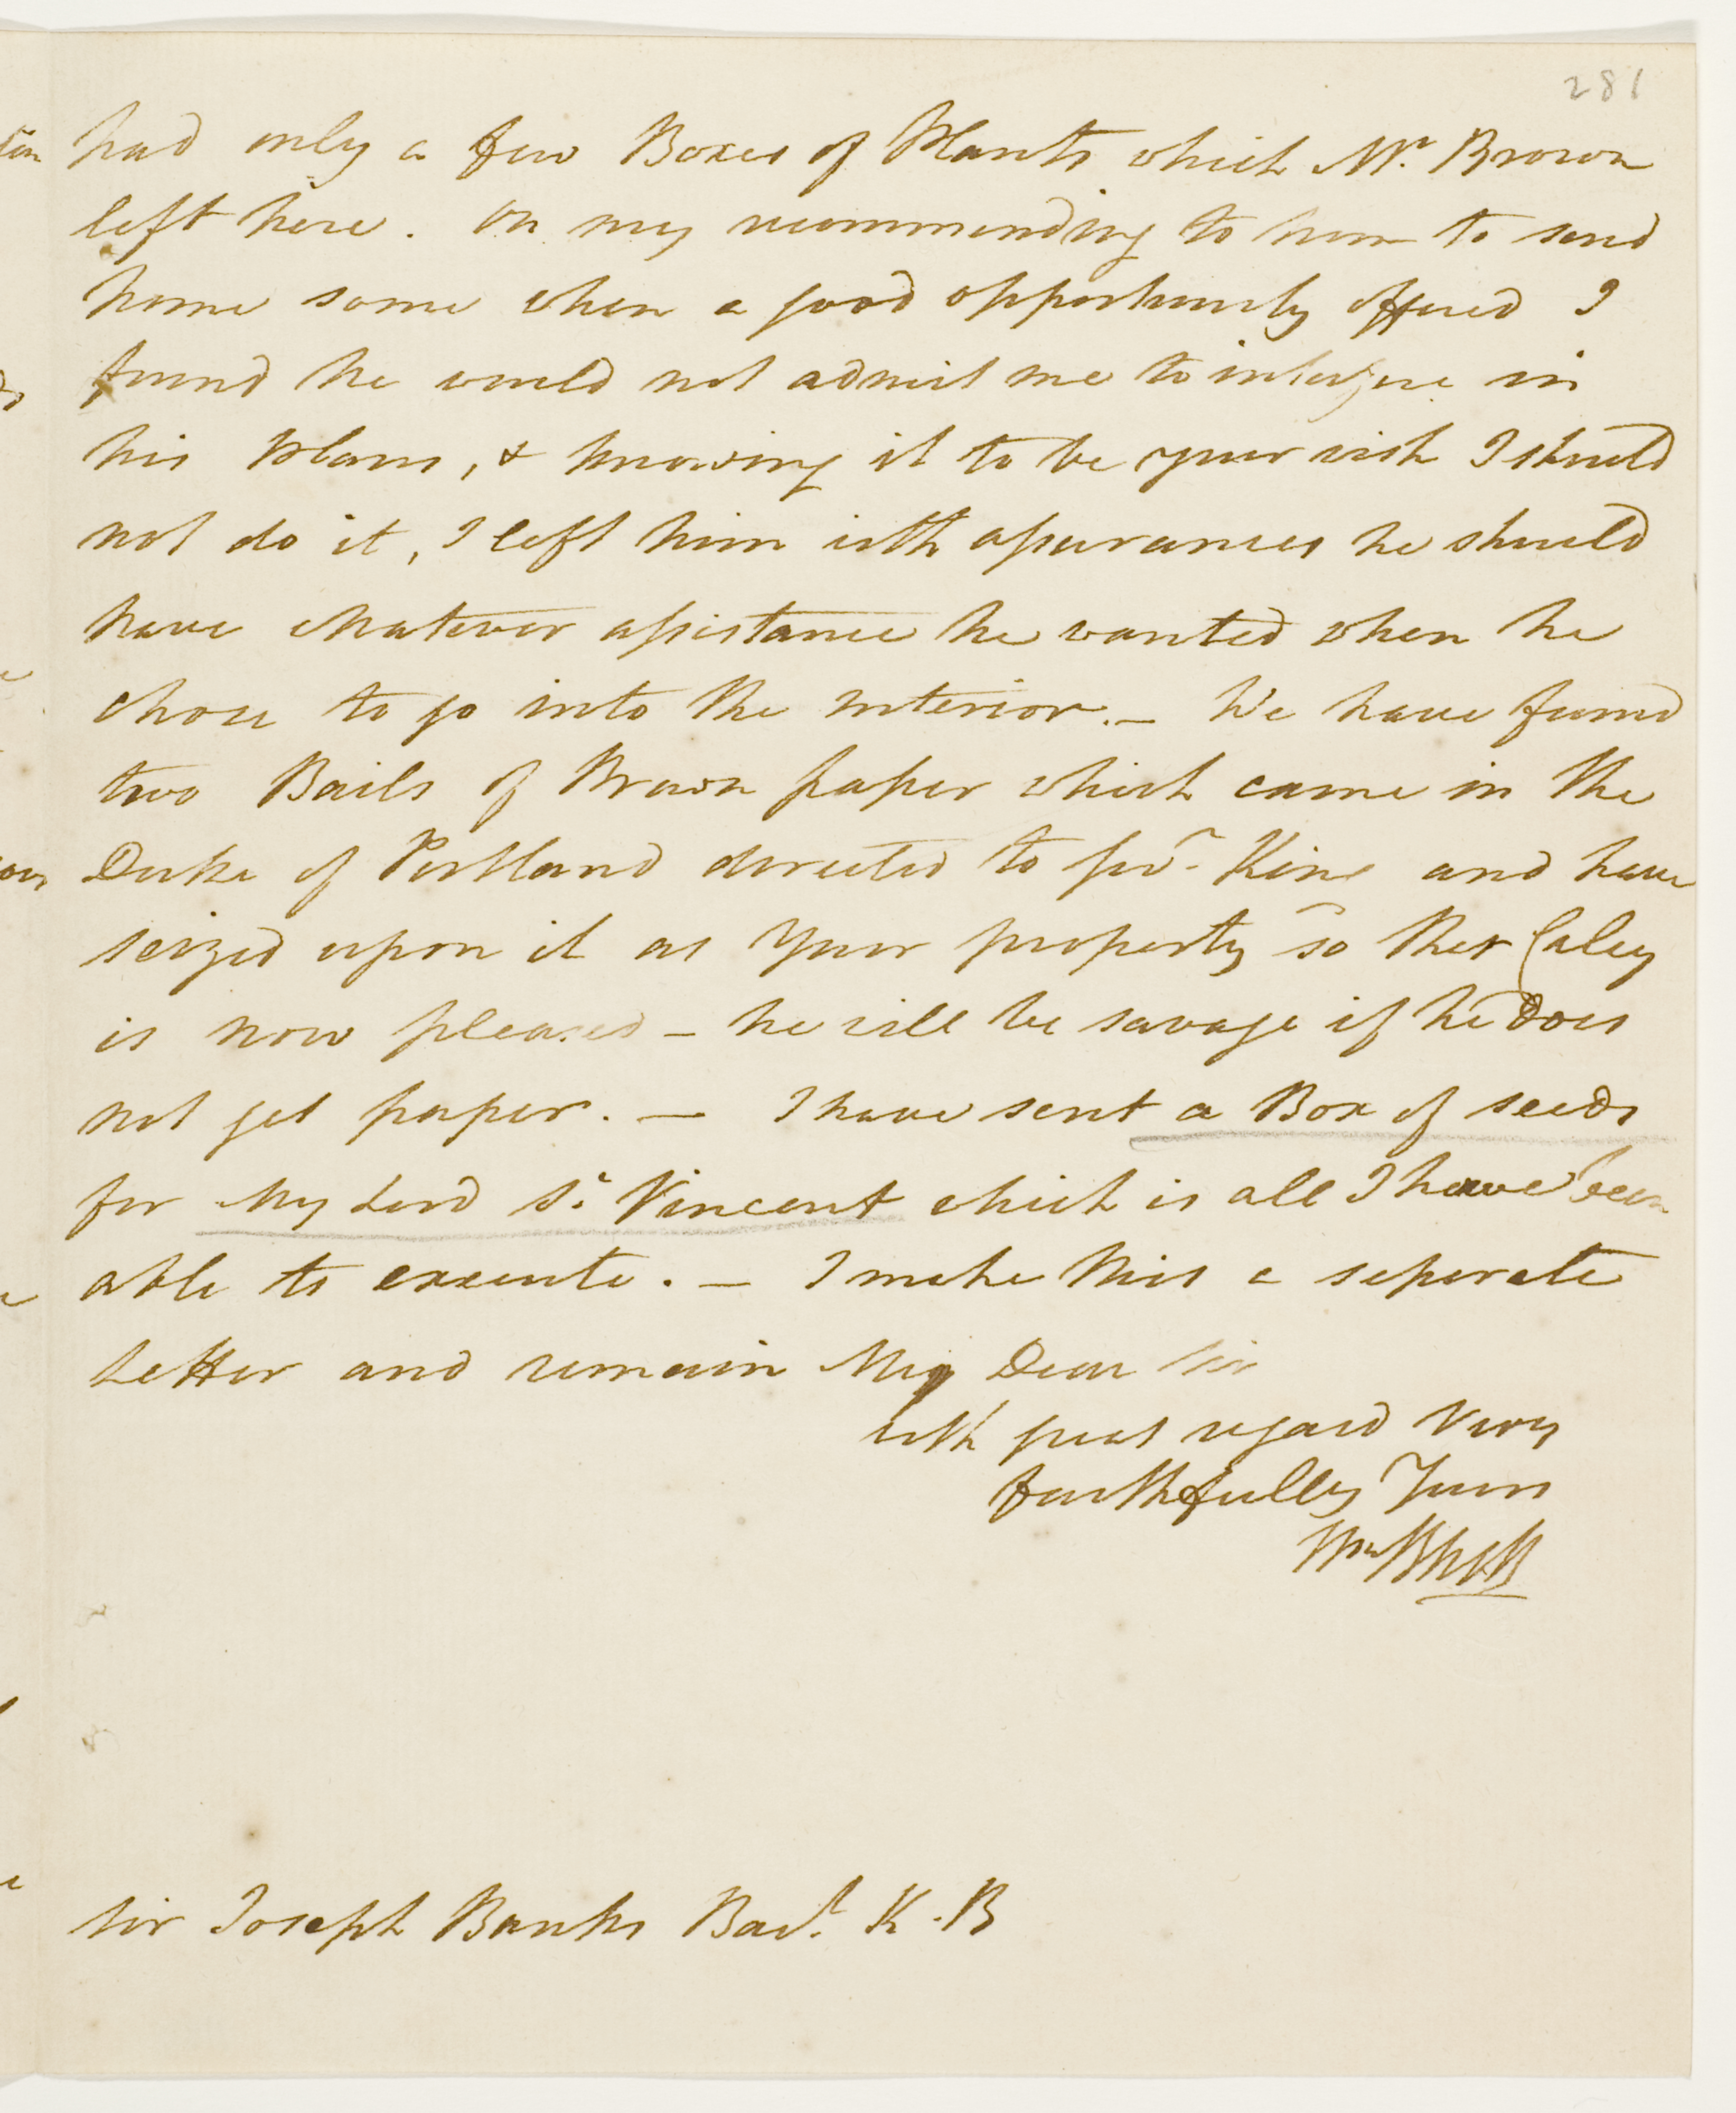 281
had only a few Boxes of Plants which Mr. Brown
left here. On my recommending to him to send
home some when a good opportunity offered I
found he would not admit me to interfere in
his plans, & knowing it to be your wish I should
not do it, I left him with assurances he should
have whatever assistance he wanted when he
chose to go into the interior. — We have found
two Bails of Brown paper which came in the
Duke of Portland directed to Govr. King and have
seized upon it as your property so that Caley
is now pleased — he will be savage if he does
not get paper. — I have sent a Box of seeds
for My Lord St. Vincent which is all I have been
able to execute. — I make this a seperate
Letter and remain My Dear Sir
with great regard Very
faithfully Yours
Wm Bligh
Sir Joseph Banks Bart. K.B